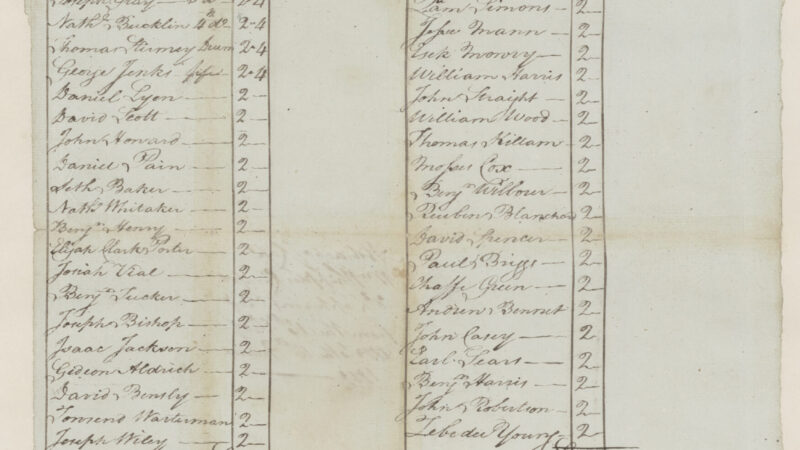 Joseph Gray 2-4
Nathl. Bucklin 4th do 2-4
Thomas Drum 2-4
George Jenks fife 2-4
Daniel Lyon 2
David Scott 2
John Howard 2
Daniel Pain 2
Seth Baker 2
Nathl. Whitaker 2
Benjn. Henry 2
Elijah Clark Porter 2
Josiah Veal 2
Benjn. Tucker 2
Joseph Bishop 2
Isaac Jackson 2
Gideon Aldrich 2
David Bensly 2
Townsend Warterman 2
Joseph Wiley 2
Simons 2
Jesse Mann 2
Esek Mowry 2
William Harris 2
John Straight 2
William Wood 2
Thomas Killam 2
Mosses Cox 2
Benjn. Willour 2
Reuben Blanchard 2
David Spencer 2
Paul Briggs 2
Chaffe Green 2
Andrew Bennet 2
John Casey 2
Earl Sears 2
Benjn. Harris 2
John Robertson 2
Zebedee Young 2